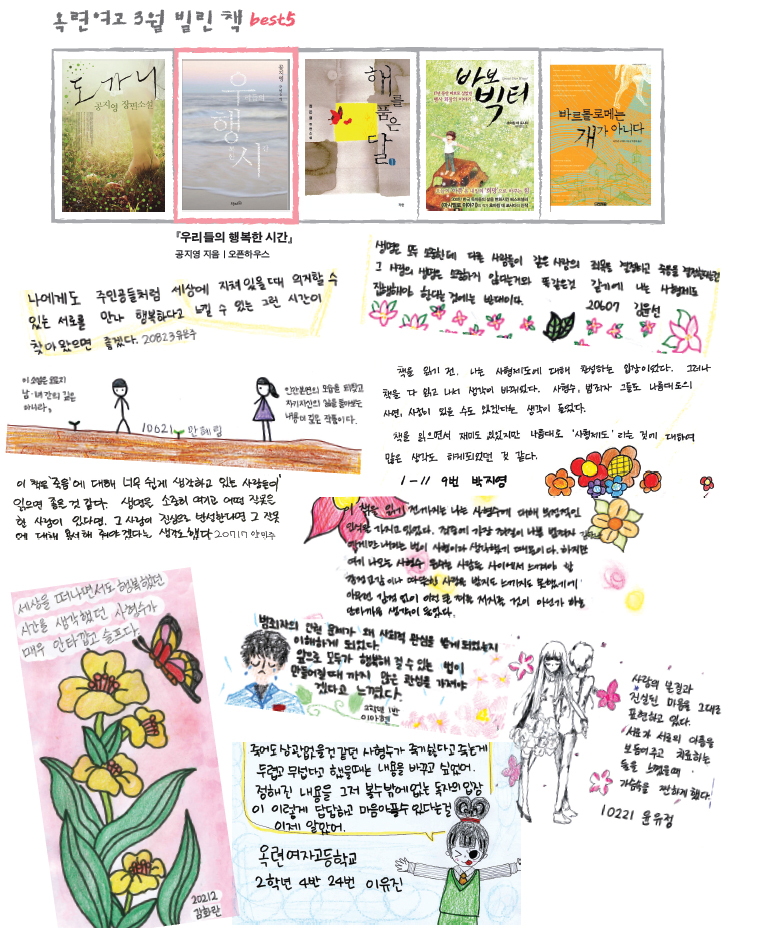 옥련여고 3월 빌린 책 best5
도가니
공지영 장편소설
우리들의
행복한
시간
공지영
해를 품은 달
1
바보 빅터
바르톨로메는 개가 아니다
『우리들의 행복한 시간』
공지영 지음 | 오픈하우스
나에게도 주인공들처럼 세상에 지쳐 있을 때 의지할 수
있는 서로를 만나 행복하다고 느낄 수 있는 그런 시간이
찾아왔으면 좋겠다. 20823 유은주
생명은 모두 소중한데 다른 사람들이 같은 사람의 죄목을 결정하고 죽음을
그 사람의 생명은 소중하지 않다는거와 똑같은것 같기에 나는 사형제도
집행해야 한다는 것에는 반대이다.
20607 김윤선
이 소설은 오로지
남·녀 간의 길은
아니라,
인간본연의 모습을 되찾고
자기자신의 삶을 돌아보는
내용이 깊은 작품이다.
10621 안혜림
책을 읽기 전, 나는 사형제도에 대해 찬성하는 입장이었다. 그러나
책을 다 읽고 나서 생각이 바뀌었다. 사형수, 범죄자 그들도 나름대로의
사연, 사정이 있을 수도 있겠다는 생각이 들었다.
책을 읽으면서 재미도 있었지만 나름대로 '사형제도' 라는 것에 대하여
많은 생각도 하게되었던 것 같다.
1-11 9번 박지영
이 책은 '죽음'에 대해 너무 쉽게 생각하고 있는 사람들이
읽으면 좋은 것 같다. 생명은 소중히 여기고 어떤 잘못은
한 사람이 있다면, 그 사람이 진심으로 반성한다면 그 잘못
에 대해 용서해 줘야겠다는 생각도 했다 20717 안민주
이 책을 읽기 전까지는 나는 사형수에 대해 부정적인
인식을 가지고 있었다. 죄중에 가장 죄질이 나쁜 범죄자
에게만 내리는 벌이 사형이라 생각했기 때문이다. 하지만
여기 나오는 사형수 윤수는 사람들 사이에서 느껴야 할
동정교감이나 따뜻한 사랑을 받지도 느끼지도 못했기에
아무런 감정 없이 이런 큰 죄를 저지른 것이 아닌가 하는
안타까운 생각이 들었다.
세상을 떠나면서도 행복했던
시간을 생각했던 사형수가
매우 안타깝고 슬프다.
20212
김화란
범죄자의 인권 문제가 왜 사회적 관심을 받게 되었는지
이해하게 되었다.
앞으로 모두가 행복해 질 수 있는 법이
만들어질때 까지 많은 관심을 가져야
겠다고 느꼈다.
2학년 1반
이아현
사랑의 본질과
진실된 마음을 그대로
표현하고 있다.
서로가 서로의 아픔을
보듬어주고 치료하는
듯을 느꼈을때
가슴속을 찡하게 했다.
10221 윤유정
죽어도 상관없을것 같던 사형수가 죽기싫다고 죽는게
두렵고 무섭다고 했을때는 내용을 바꾸고 싶었어.
정해진 내용을 그저 볼수밖에 없는 독자의 입장
이 이렇게 답답하고 마음아플수 있다는걸
이제 알았어.
옥련여자고등학교
2학년 4반 24번 이유진